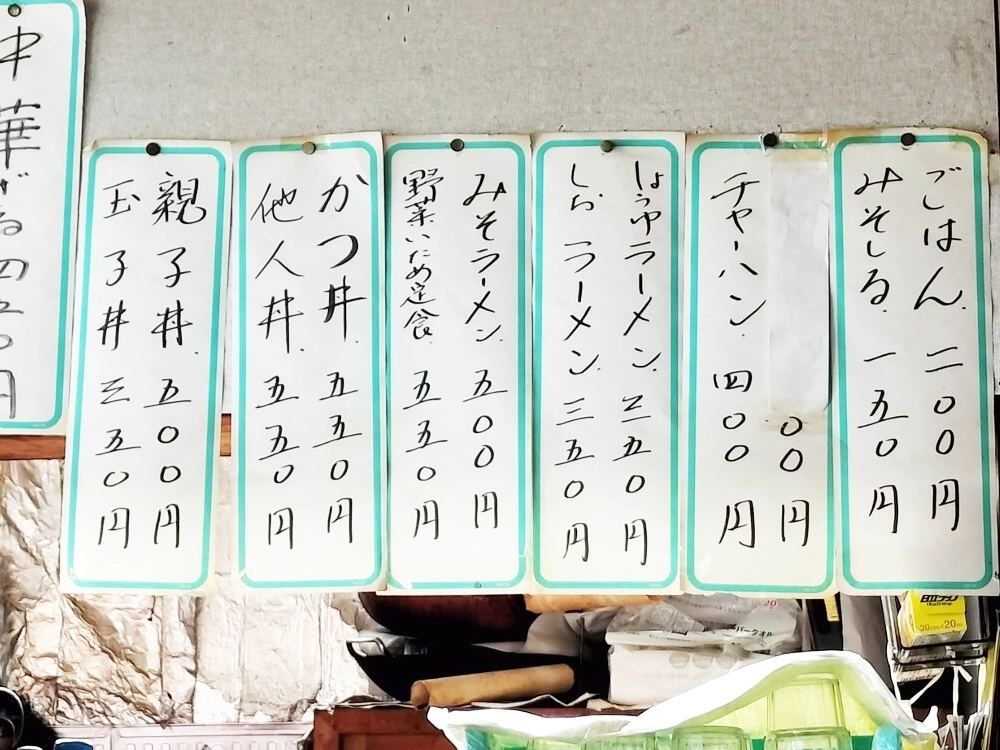 ごはん 二〇〇円
みそしる 一五〇円
〇〇円
チャーハン 四〇〇円
しょうゆラーメン 三五〇円
しおラーメン 三五〇円
みそラーメン 五〇〇円
野菜いため定食 五五〇円
かつ丼 五五〇円
他人丼 五五〇円
親子丼 五〇〇円
玉子丼 三五〇円
中華ざる四五〇円
30cm×20m